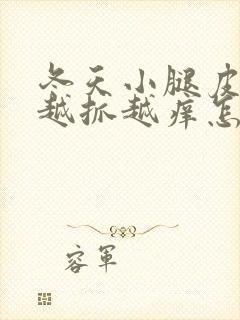 冬天小腿皮
越抓越痒怎
容军